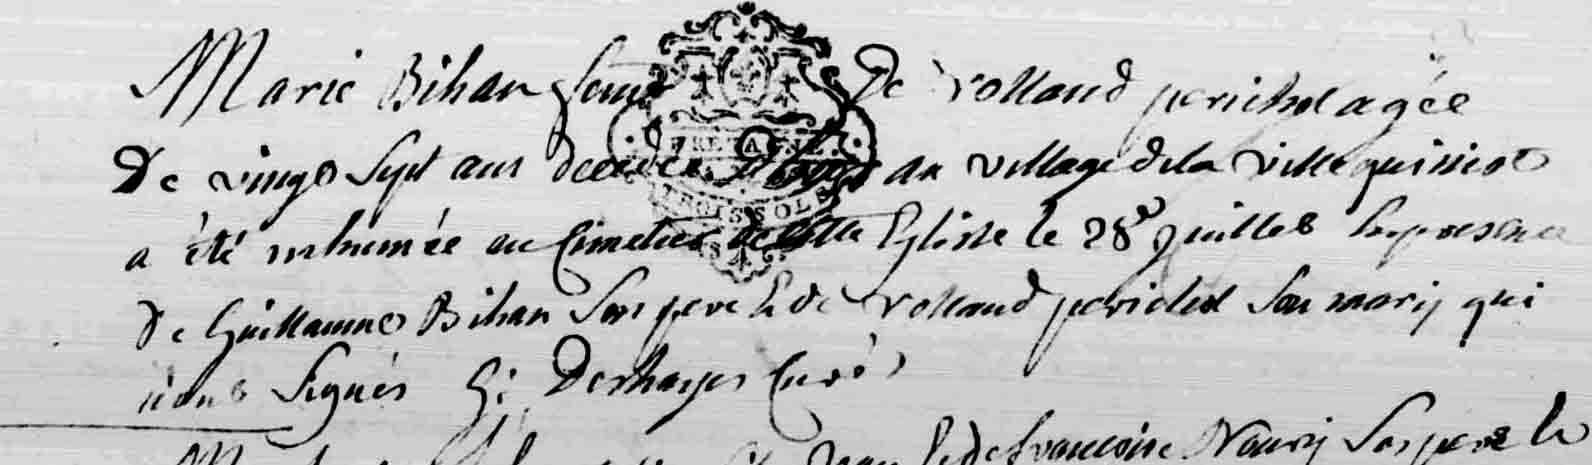 Marie Bihan feme De rolland perichot agée
De vingt sept ans decedée au village dela ville
a été inhumée au Cimetiere de cette Eglise le 28e juillet en presence
De Guillaume Bihan son pere & de rolland perichot son mary qui
nont signés G: Deshayes Curé
BRETAGNE
SOLS
de francoise Noury son pere